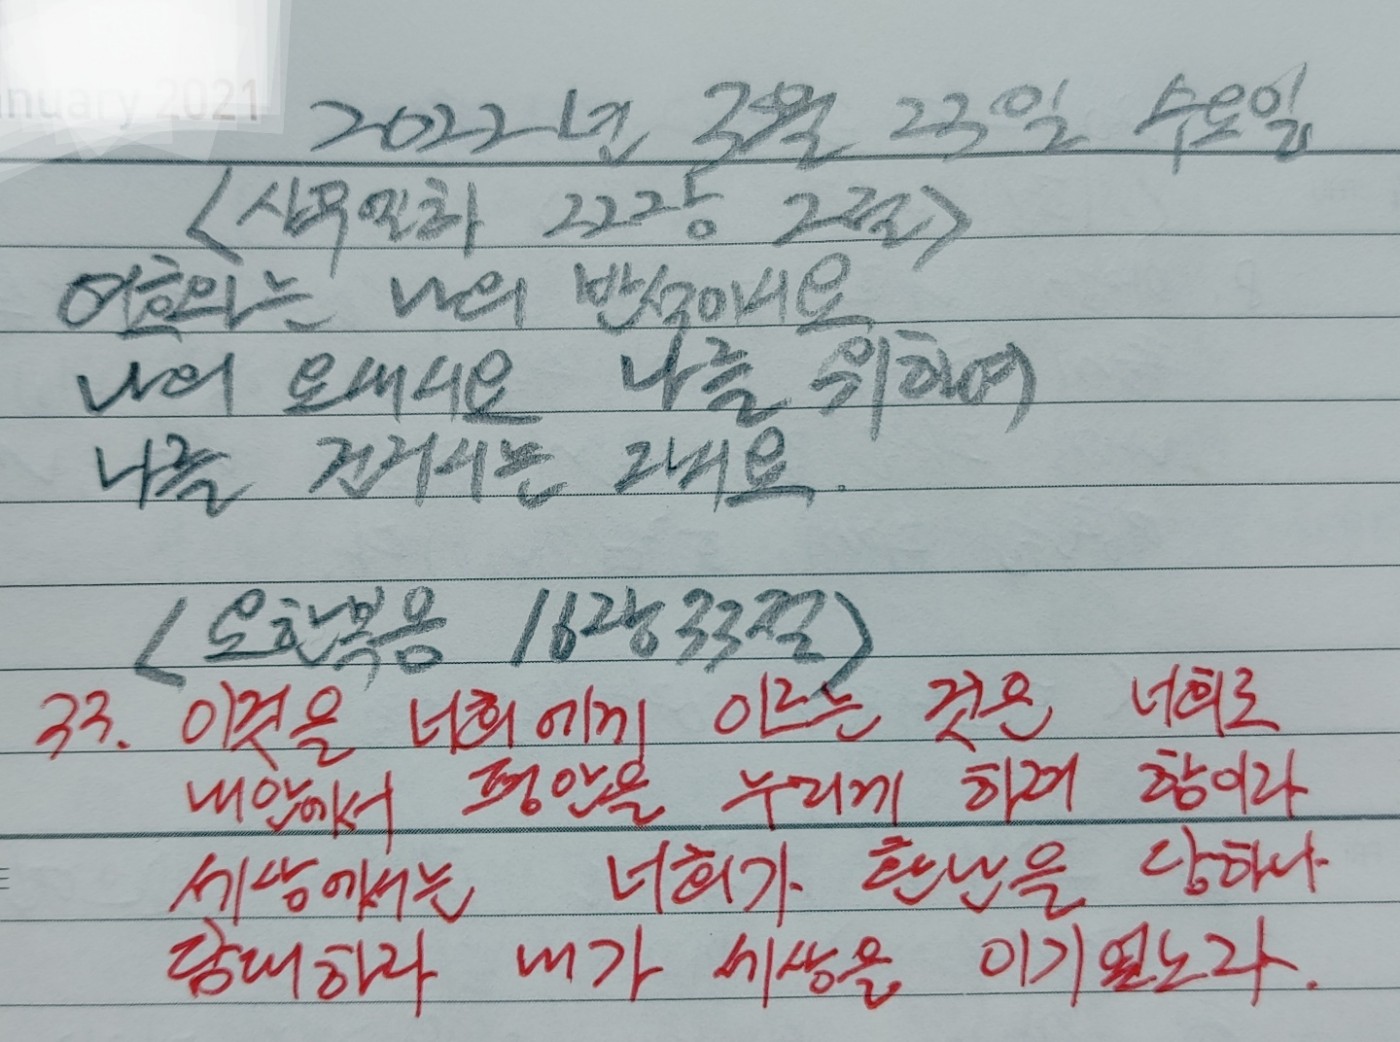 anuary 2021
2022년 3월 23일 수요일
<사무엘하 22장 2절>
여호와는 나의 반석이시요
나의 요새시요 나를 위하여
나를 건지시는 자시요.
<요한복음 16장 33절>
33. 이것을 너희에게 이르는 것은 너희로
내 안에서 평안을 누리게 하려 함이라
세상에서는 너희가 환난을 당하나
담대하라 내가 세상을 이기었노라.